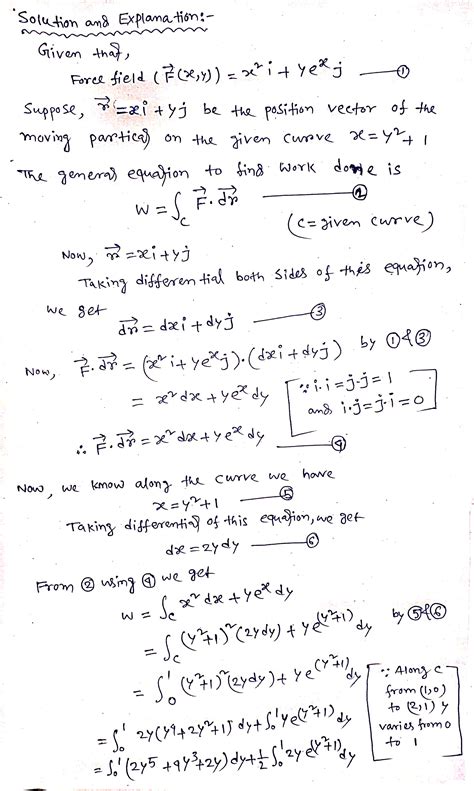 Solution and Explanation:-
Given that,
Force field (F⃗(x,y)) = x² i + y eˣ j —— ①
Suppose, r⃗ = xi + yj be the position vector of the
moving partical on the given curve x = y² + 1
The general equation to find work done is
W = ∫_C F⃗ . dr⃗ —— ②
(C = given curve)
Now, r⃗ = xi + yj
Taking differential both sides of this equation,
we get
dr⃗ = dxi + dyj —— ③
Now, F⃗ . dr⃗ = (x² i + y eˣ j) . (dxi + dyj) by ① & ③
= x² dx + y eˣ dy [∵ i.i = j.j = 1
and i.j = j.i = 0]
∴ F⃗ . dr⃗ = x² dx + y eˣ dy —— ④
Now, we know along the curve we have
x = y² + 1 —— ⑤
Taking differential of this equation, we get
dx = 2y dy —— ⑥
From ② using ④ we get
W = ∫_C x² dx + y eˣ dy
= ∫_C (y²+1)² (2y dy) + y e^(y²+1) dy by ⑤ & ⑥
= ∫₀¹ (y²+1)² (2y dy) + y e^(y²+1) dy [∵ Along C
from (1,0)
to (2,1) y
varies from 0
to 1]
= ∫₀¹ 2y (y⁴ + 2y² + 1) dy + ∫₀¹ y e^(y²+1) dy
= ∫₀¹ (2y⁵ + 4y³ + 2y) dy + ½ ∫₀¹ 2y e^(y²+1) dy